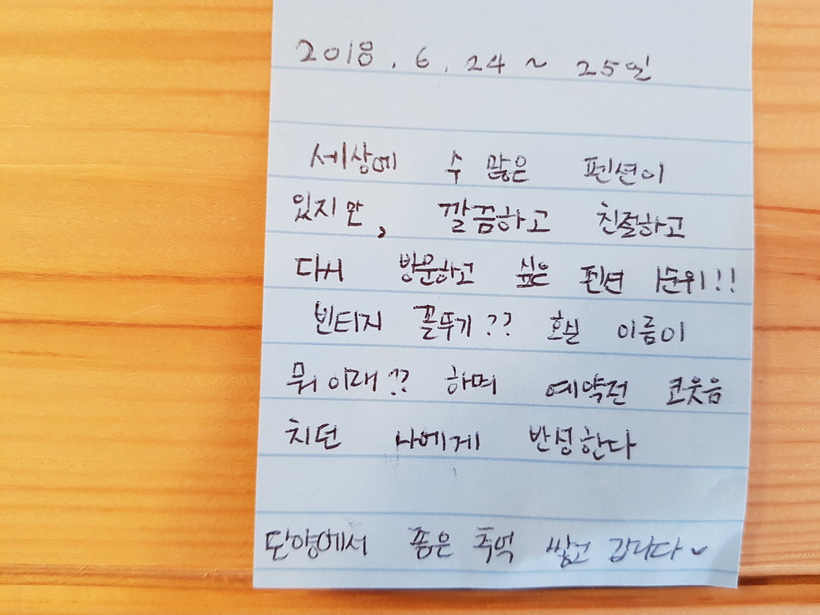 2018. 6. 24 ~ 25일
세상에 수 많은 펜션이
있지만, 깔끔하고 친절하고
다시 방문하고 싶은 펜션 1순위!!
빈티지 꼴뚜기?? 호실 이름이
뭐 이래?? 하며 예약전 코웃음
치던 나에게 반성한다
단양에서 좋은 추억 쌓고 갑니다